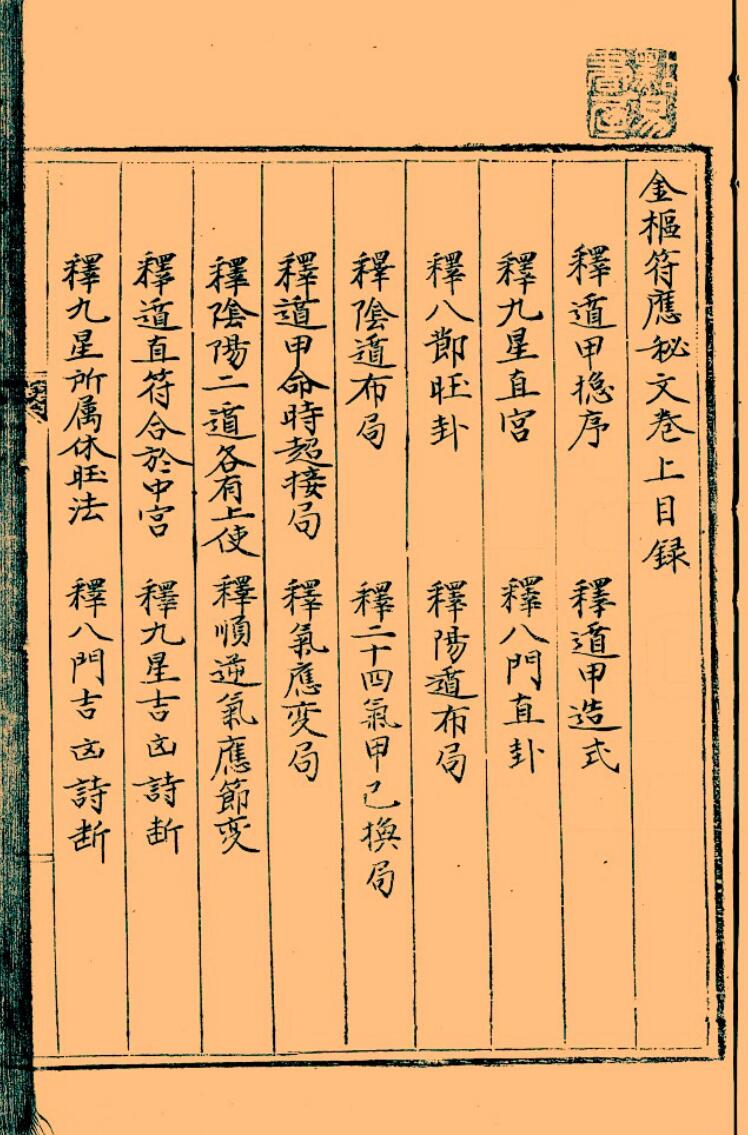 金樞符應秘文卷上目録
釋遁甲揔序 釋遁甲造式
釋九星直宮 釋八門直卦
釋八節旺卦 釋陽遁布局
釋陰遁布局 釋二十四氣甲己換局
釋遁甲命時超接局 釋氣應变局
釋陰陽二遁各有上使 釋順逆氣應節变
釋遁直符合於中宮 釋九星吉凶詩断
釋九星所属休旺法 釋八門吉凶詩断